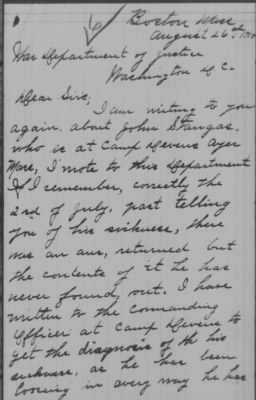 Boston Mass
August 26th, 1918
War Department of Justice
Washington D C.
Dear Sirs,
I am writing to you
again. about John Stangas.
who is at Camp Devens Ayer
Mass, I wrote to this Department
If I remember, correctly the
2nd of July, past telling
you of his sickness, there
was an ans, returned but
the contents of it he has
never found, out. I have
written to the Commanding
Officer at Camp Devens to
get the diagnosis of the his
sickness, as he has been
loosing in every way he has